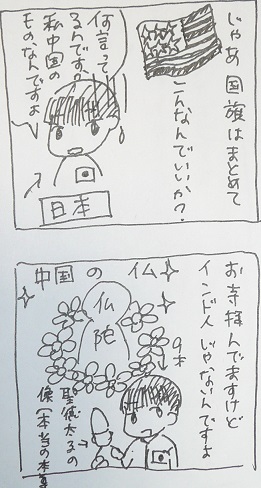 じゃあ国旗はまとめて
こんなんでいいか？
何言って
るんですか
私中国の
ものなんですよ
日本
お寺拝んでますけど
インド人じゃないんですよ
中国の仏
仏陀
聖徳太子の
像(本当の本尊